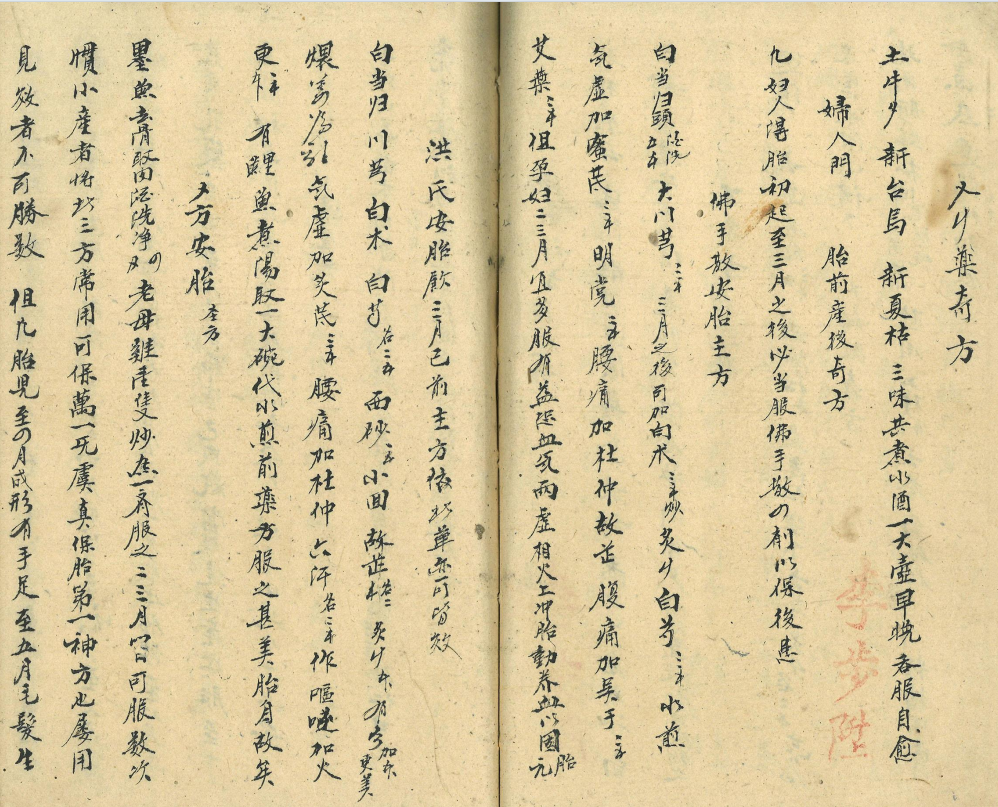 又ㄐ藥奇方
土牛夕 新台烏 新夏枯 三味共煮水酒一大壺早晚吞服自愈
婦人門 胎前産後奇方
凢妇人得胎初起至三月之後必当服佛手散の剤以保後患
佛手散安胎主方
白当归頭 酒洗 大川芎 三月之後可加白术 炒 炙ㄐ 白芍 水煎
気虚加蜜芪 明党 腰痛加杜仲故芷 腹痛加吴于
艾葉 但孕妇二三月宜多服有益恐血気両虚相火上冲胎動养血以固胎元
洪氏安胎飲 三月已前主方依此单亦可皆效
白当归 川芎 白术 白芍 西砂 小回 故芷 炙ㄐ 加 更美
煨姜為引 気虚加炙芪 腰痛加杜仲 六汗 作嘔噁加火
更 有鯉魚煮湯取一大碗代水煎前藥方服之甚美胎自故矣
又方安胎 本方
墨魚去骨取肉酒洗净 老母雞壹隻炒焦一斉服之二三月間可服数次
慣小産者将此三方常用可保萬一旡虞真保胎第一神方也屡用
見效者不可勝数 但凢胎児至の月成形有手足至五月毛髮生
李步陞